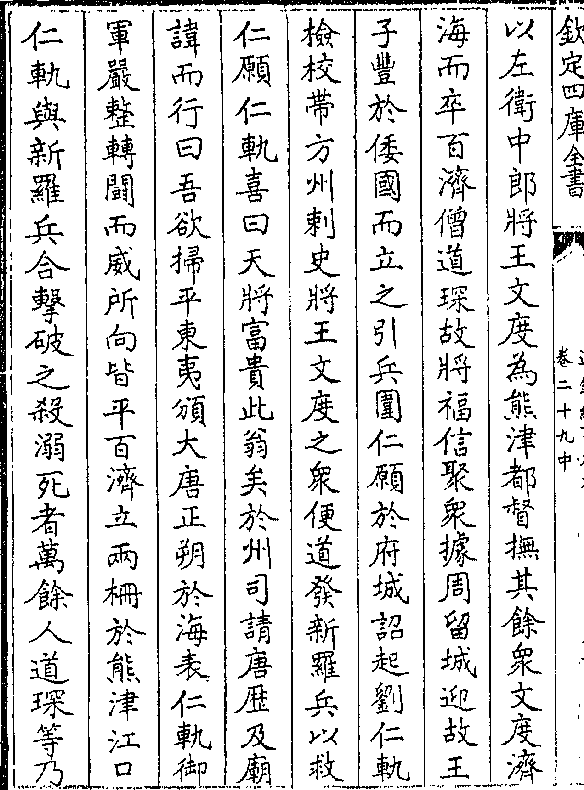 欽定四庫全書
卷二十九中
以左衛中郎將王文度為熊津都督撫其餘衆文度濟
海而卒百濟僧道琛故將福信聚衆據周留城迎故王
子豐於倭國而立之引兵圍仁願於府城詔起劉仁軌
檢校帶方州刺史將王文度之衆便道發新羅兵以救
仁願仁軌喜曰天將富貴此翁矣於州司請唐歴及廟
諱而行曰吾欲掃平東夷頒大唐正朔於海表仁軌御
軍嚴整轉鬬而威所向皆平百濟立兩柵於熊津江口
仁軌與新羅兵合擊破之殺溺死者萬餘人道琛等乃